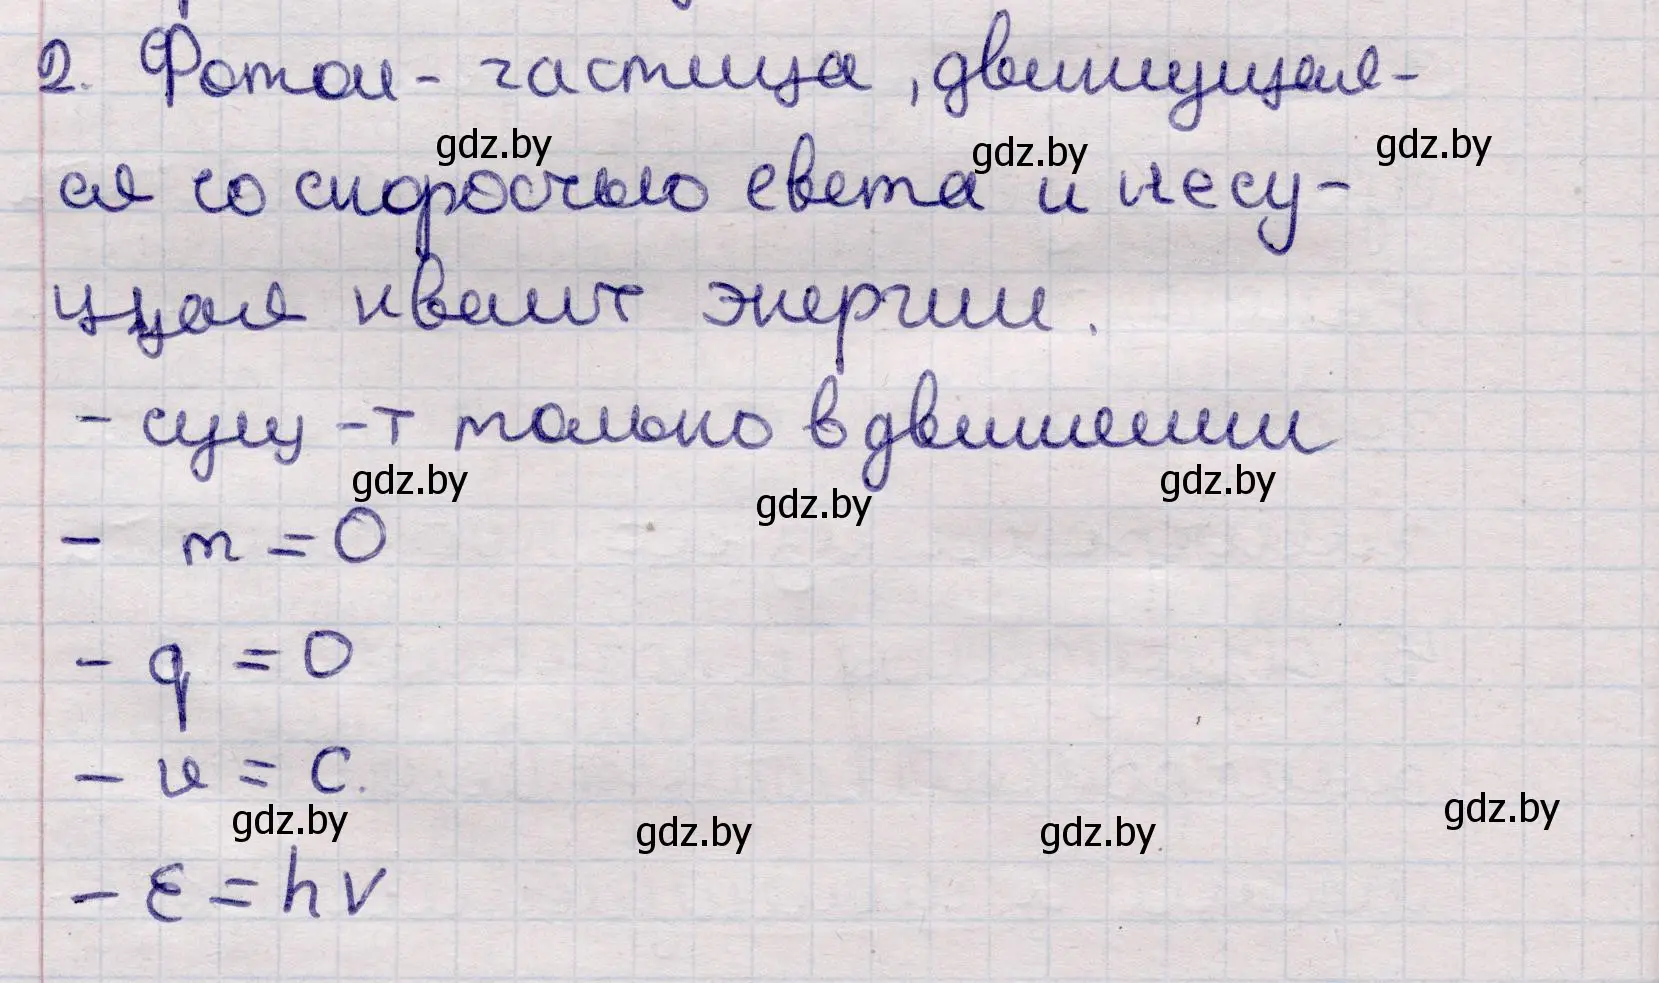 2. Фотон - частица, движущая-
ся со скоростью света и несу-
щая квант энергии.
- сущ-т только в движении
- m = 0
- q = 0
- v = c.
- ε = hν
gdz.by
gdz.by
gdz.by
gdz.by
gdz.by
gdz.by
gdz.by
gdz.by
gdz.by
gdz.by